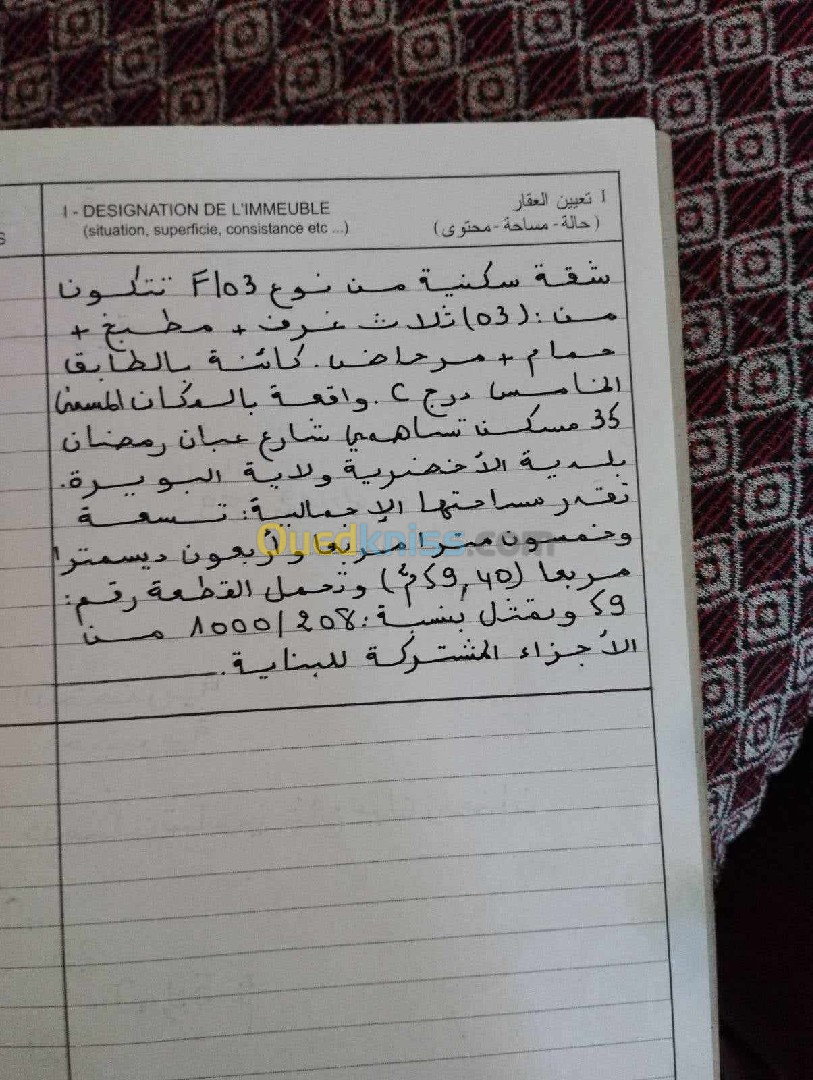 I - DESIGNATION DE L'IMMEUBLE
(situation, superficie, consistance etc ...)
I تعيين العقار
(حالة - مساحة - محتوى)
S
شقة سكنية من نوع F/03 تتكون
من: (03) ثلاث غرف + مطبخ +
حمام + مرحاض. كائنة بالطابق
الخامس درج C. واقعة بالمكان المسمى
35 مسكن تساهمي شارع عبان رمضان
بلدية الأخضرية ولاية البويرة.
تقدر مساحتها الإجمالية: تسعة
وخمسون متر مربعا وأربعون ديسمترا
مربعا (59,40م²) وتحمل القطعة رقم:
59 وتمثل بنسبة: 1000/208 من
الأجزاء المشتركة للبناية.
Ouedkniss.com